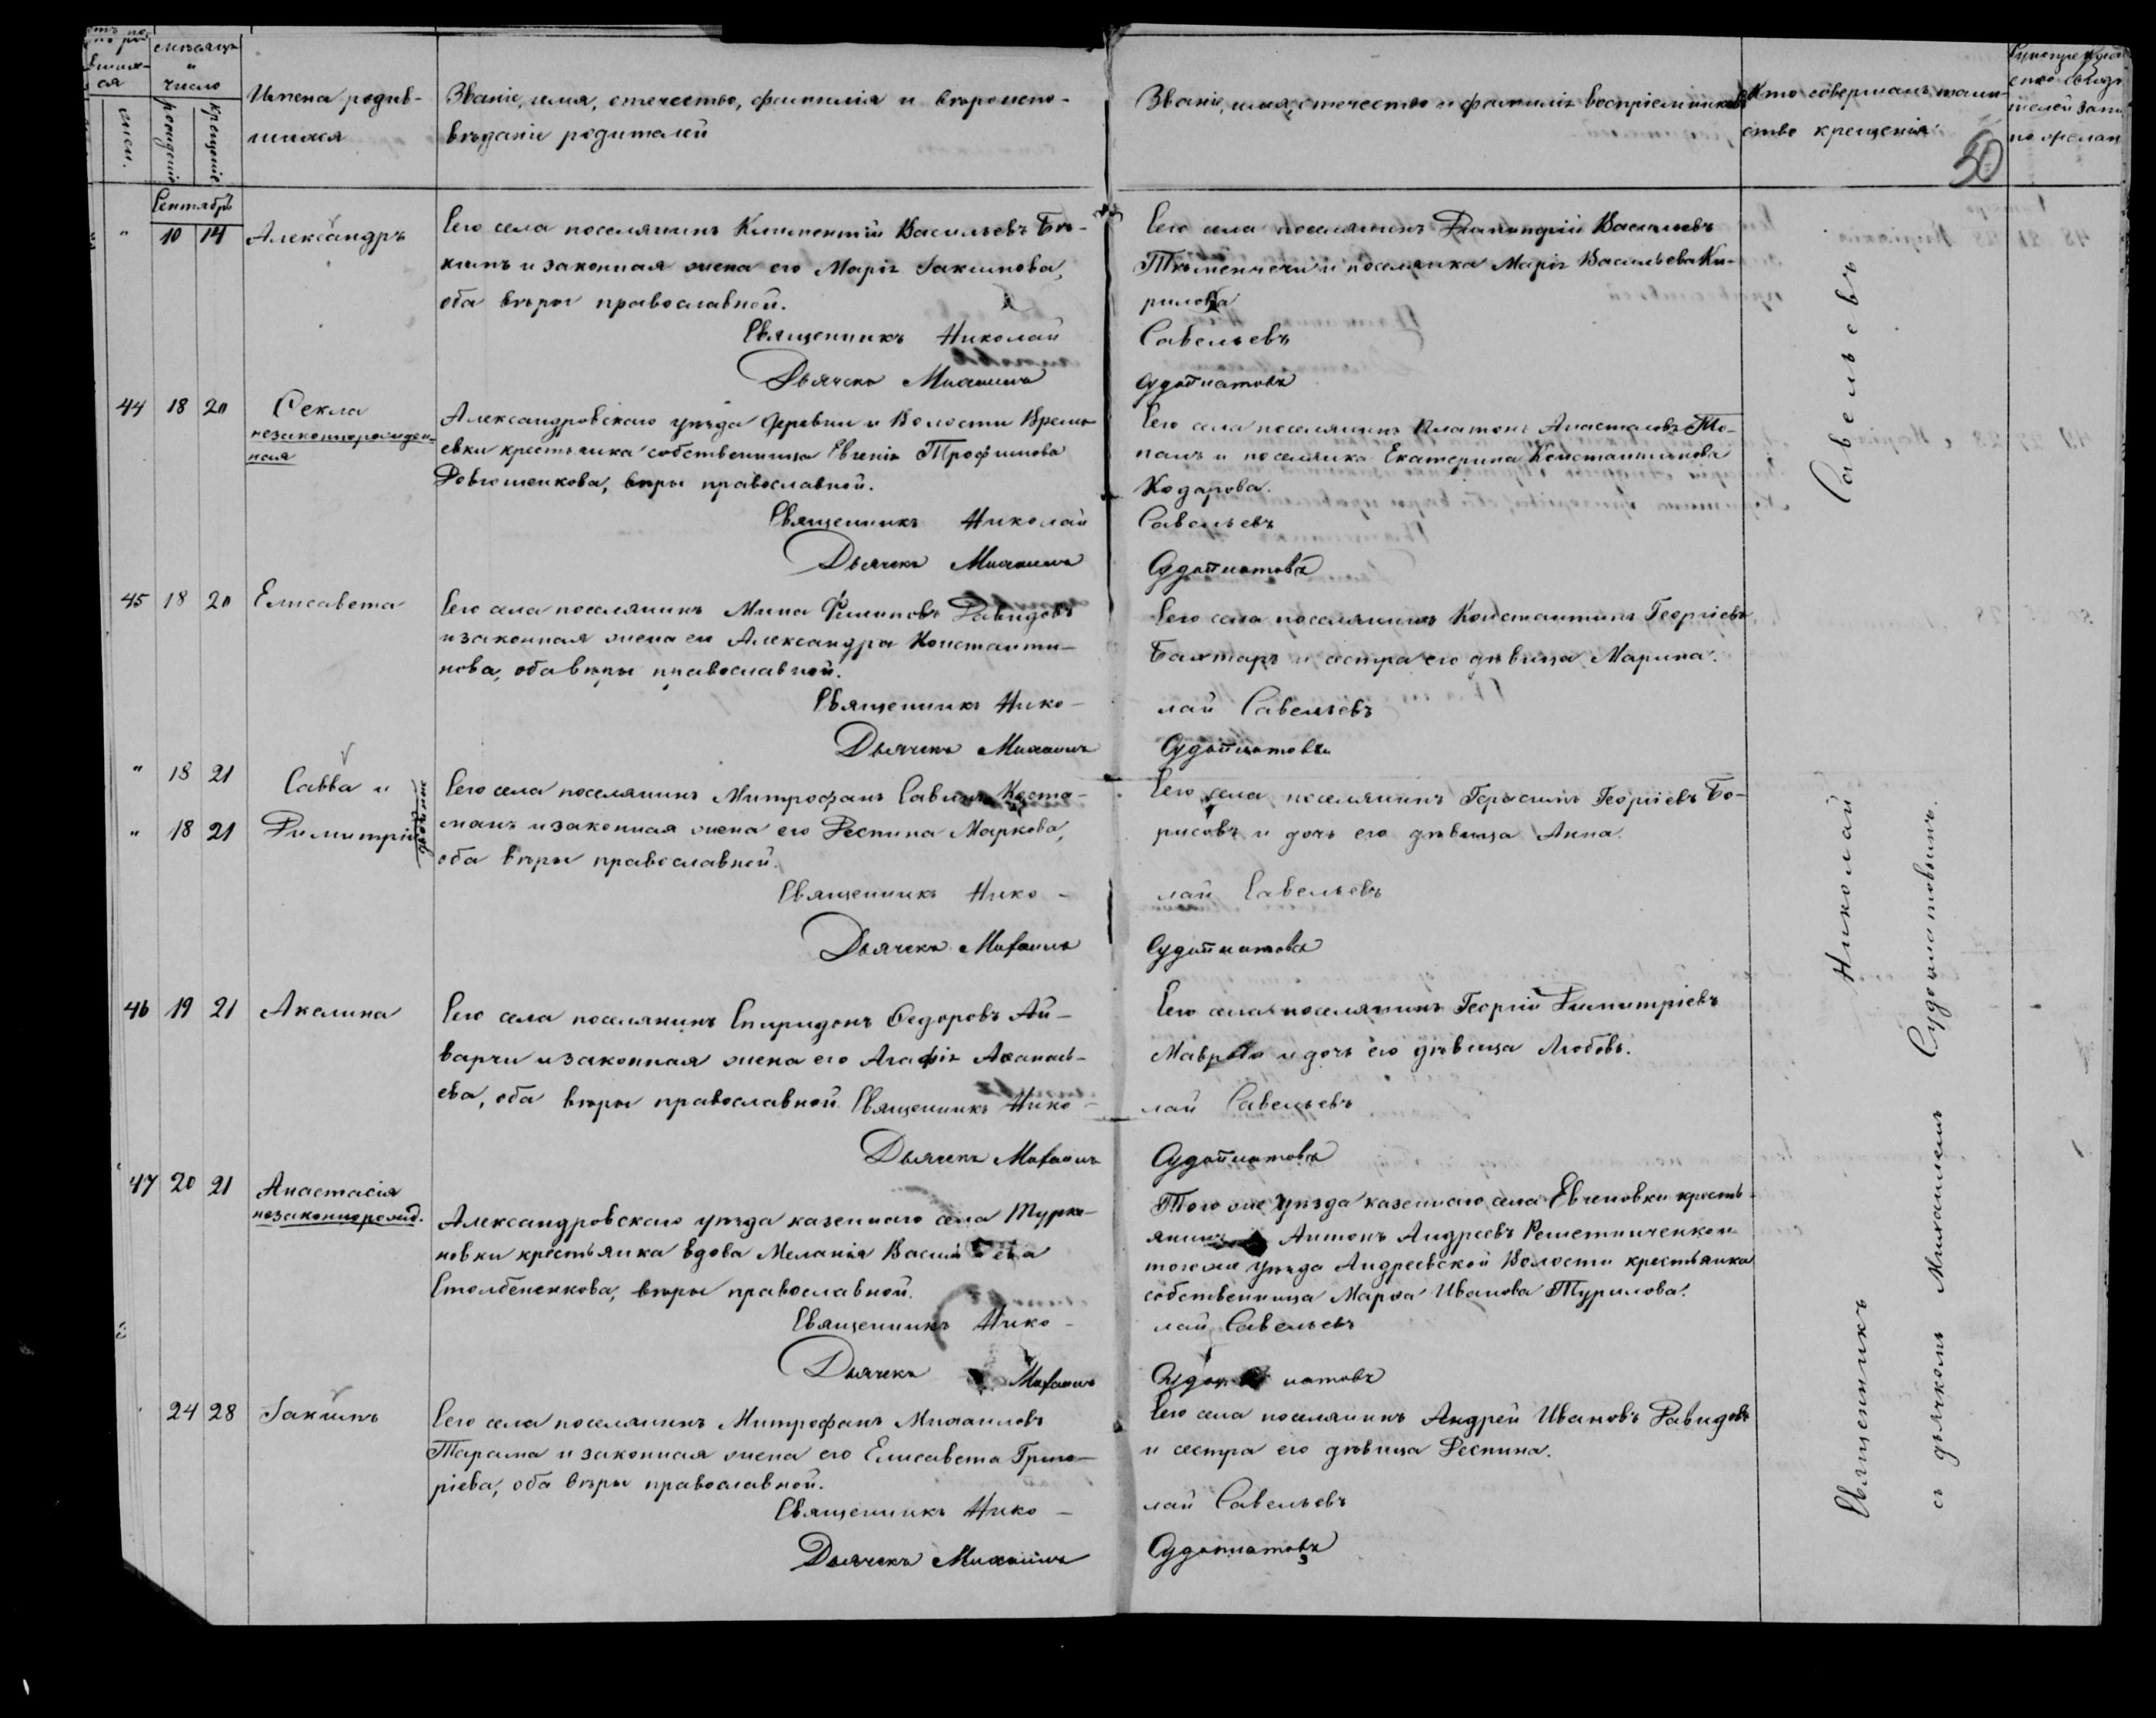 мѣсяцъ
и
число
рожденіе
крещеніе
Имена родив-
шихся
Званіе, имя, отечество, фамилія и вѣроиспо-
вѣданіе родителей
Званіе, имя, отечество и фамилія воспріемниковъ
Кто совершалъ таин-
ство крещенія
50
Сентябрь
" 10 14 Александръ
Сего села поселянинъ Климентій Васильевъ
и законная жена его Марія Іакимова,
оба вѣры православной.
Священникъ Николай
Дьячекъ Михаилъ
Сего села поселянинъ Васильевъ
и поселянка Марія Васильева Ки-
рилова
Савельевъ
Судоплатовъ
44 18 20 Ѳекла
незаконнорожден-
ная
Александровскаго уѣзда деревни и Волости Время-
евки крестьянка собственница Евгенія Трофимова
Довгошенкова, вѣры православной.
Священникъ Николай
Дьячекъ Михаилъ
Сего села поселянинъ Платонъ Анастасовъ То-
палъ и поселянка Екатерина Константинова
Кодарова.
Савельевъ
Судоплатовъ
45 18 20 Елисавета
Сего села поселянинъ Мина Филиповъ Давидовъ
и законная жена его Александра Константи-
нова, оба вѣры православной.
Священникъ Нико-
Дьячекъ Михаилъ
Сего села поселянинъ Константинъ Георгіевъ
Бахтаръ и сестра его дѣвица Марина.
лай Савельевъ
Судоплатовъ
" 18 21 Савва и
" 18 21 Димитрій
двойные
Сего села поселянинъ Митрофанъ Савинъ Коста-
манъ и законная жена его Деспина Маркова,
оба вѣры православной.
Священникъ Нико-
Дьячекъ Михаилъ
Сего села поселянинъ Герасимъ Георгіевъ Бо-
рисовъ и дочь его дѣвица Анна.
лай Савельевъ
Судоплатовъ
46 19 21 Акелина
Сего села поселянинъ Спиридонъ Ѳедоровъ Ай-
варчи и законная жена его Агафія Аѳанась-
ева, оба вѣры православной. Священникъ Нико-
Дьячекъ Михаилъ
Сего села поселянинъ Георгій Димитріевъ
и дочь его дѣвица Любовь.
лай Савельевъ
Судоплатовъ
47 20 21 Анастасія
незаконнорожд.
Александровскаго уѣзда казеннаго села Турке-
новки крестьянка вдова Меланія Васильева
Столбененкова, вѣры православной.
Священникъ Нико-
Дьячекъ Михаилъ
Того же уѣзда казеннаго села Евченовки кресть-
янинъ Антонъ Андреевъ
того же уѣзда Андреевской Волости крестьянка
собственница Марѳа Иванова Турилова.
лай Савельевъ
Судоплатовъ
24 28 Іакимъ
Сего села поселянинъ Митрофанъ Михаиловъ
Тарама и законная жена его Елисавета Григо-
ріева, оба вѣры православной.
Священникъ Нико-
Дьячекъ Михаилъ
Сего села поселянинъ Андрей Ивановъ Давидовъ
и сестра его дѣвица Деспина.
лай Савельевъ
Судоплатовъ
Священникъ Николай Савельевъ
съ дьячкомъ Михаиломъ Судоплатовымъ.